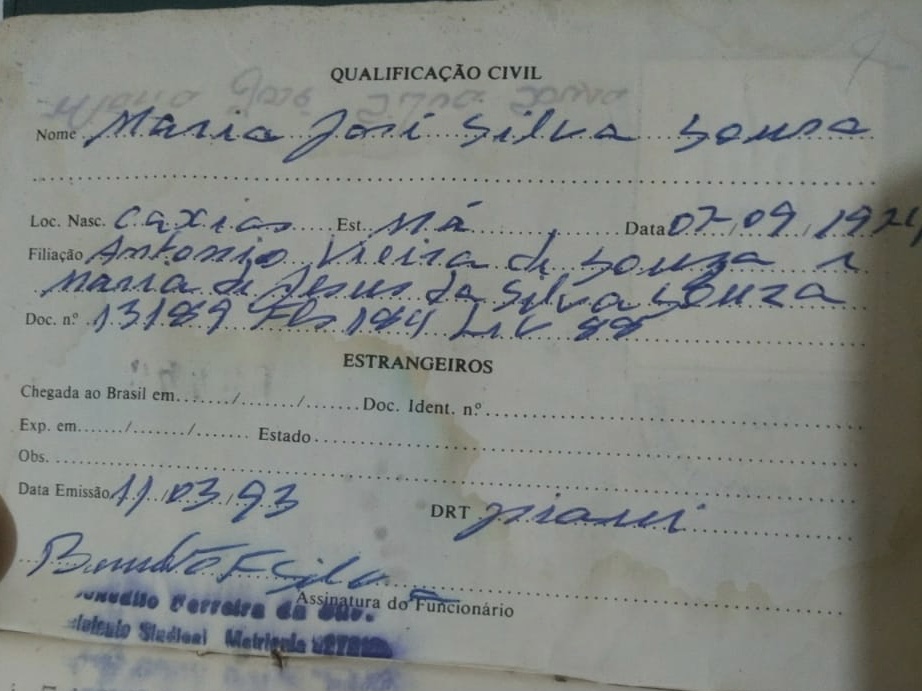 QUALIFICAÇÃO CIVIL
Nome Maria José Silva Sousa
Loc. Nasc. Caxias Est. Má Data 07.09.1974
Filiação Antonio Vieira de Souza e
Maria de Jesus da Silva Souza
Doc. n.º 13189 Fls 184 Liv 88
ESTRANGEIROS
Chegada ao Brasil em....../....../...... Doc. Ident. n.º
Exp. em....../....../...... Estado
Obs.
Data Emissão 11.03.93 DRT Piaui
Assinatura do Funcionário
Ferreira da
Sindical Matricula